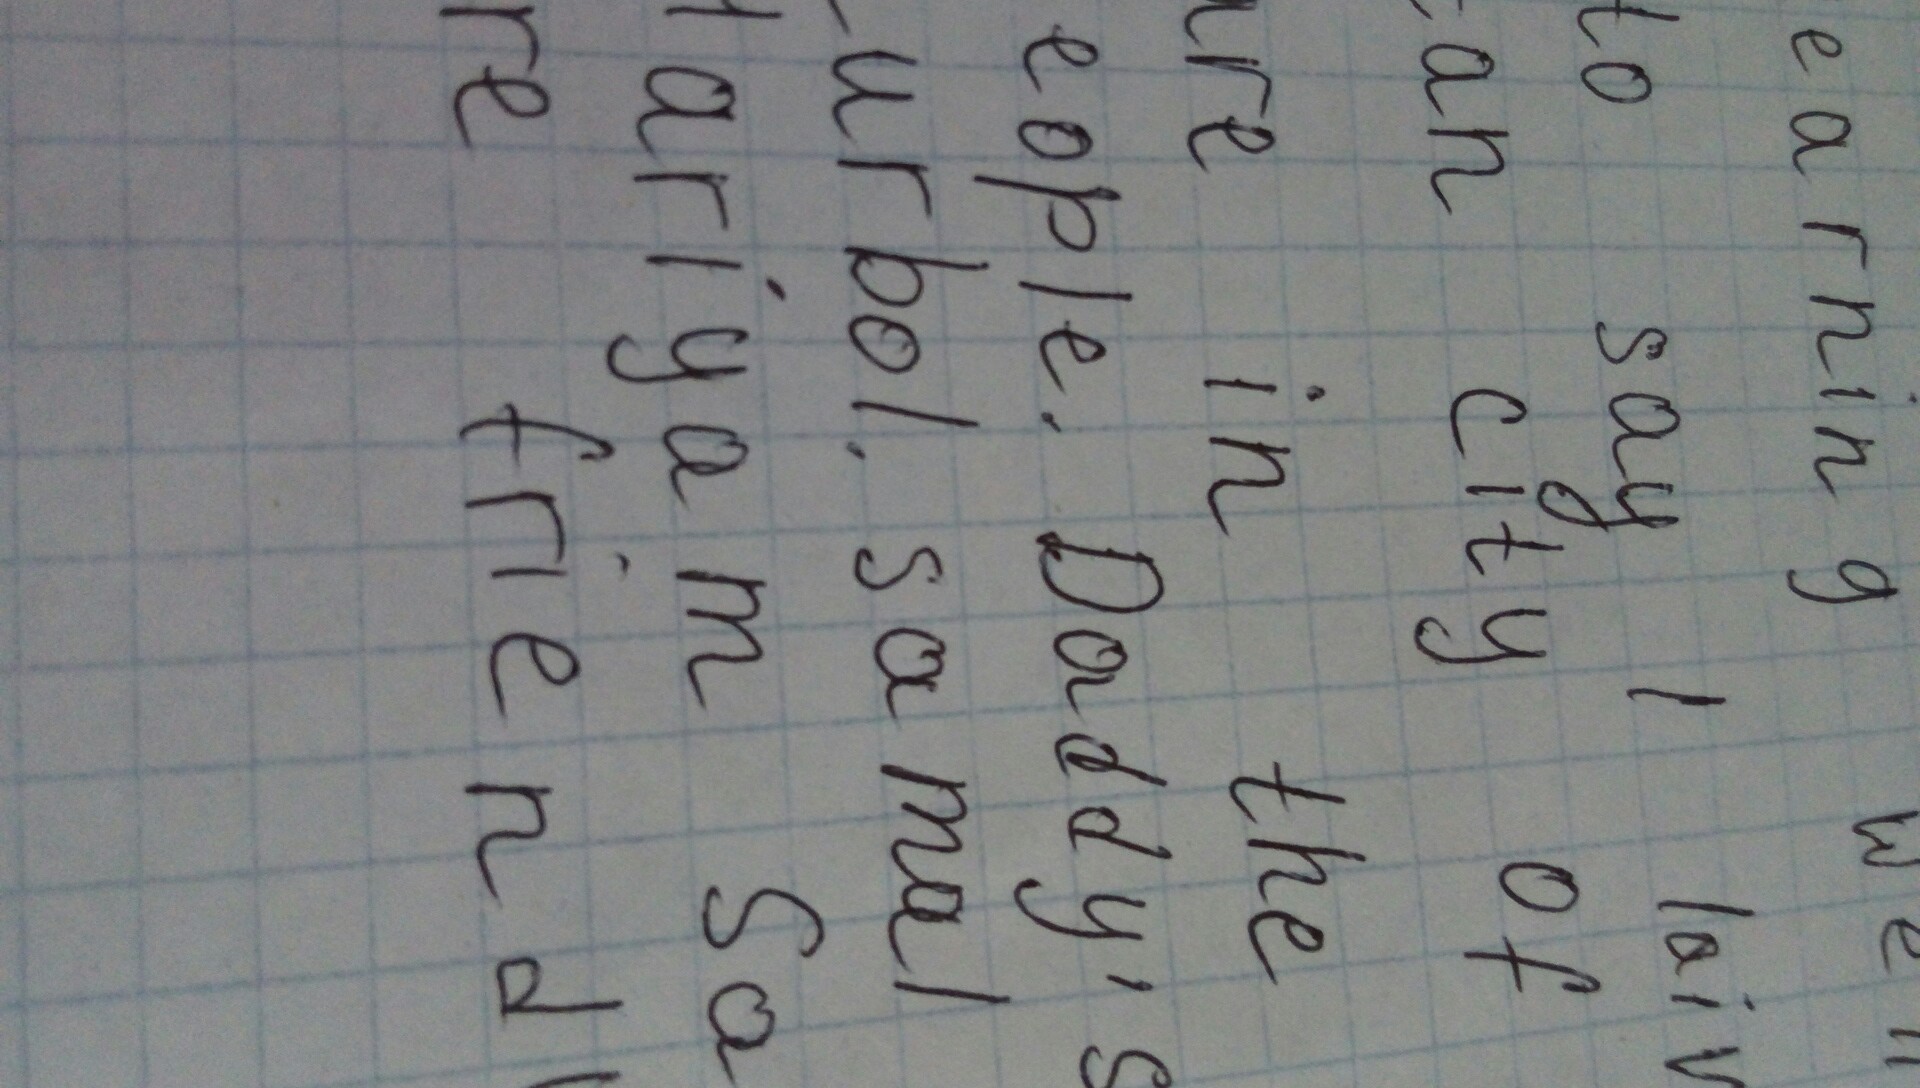 earning well
to say I laiv
an city of
are in the
eople. Daddy's
urbol. samal
ariyam Sa
re friend